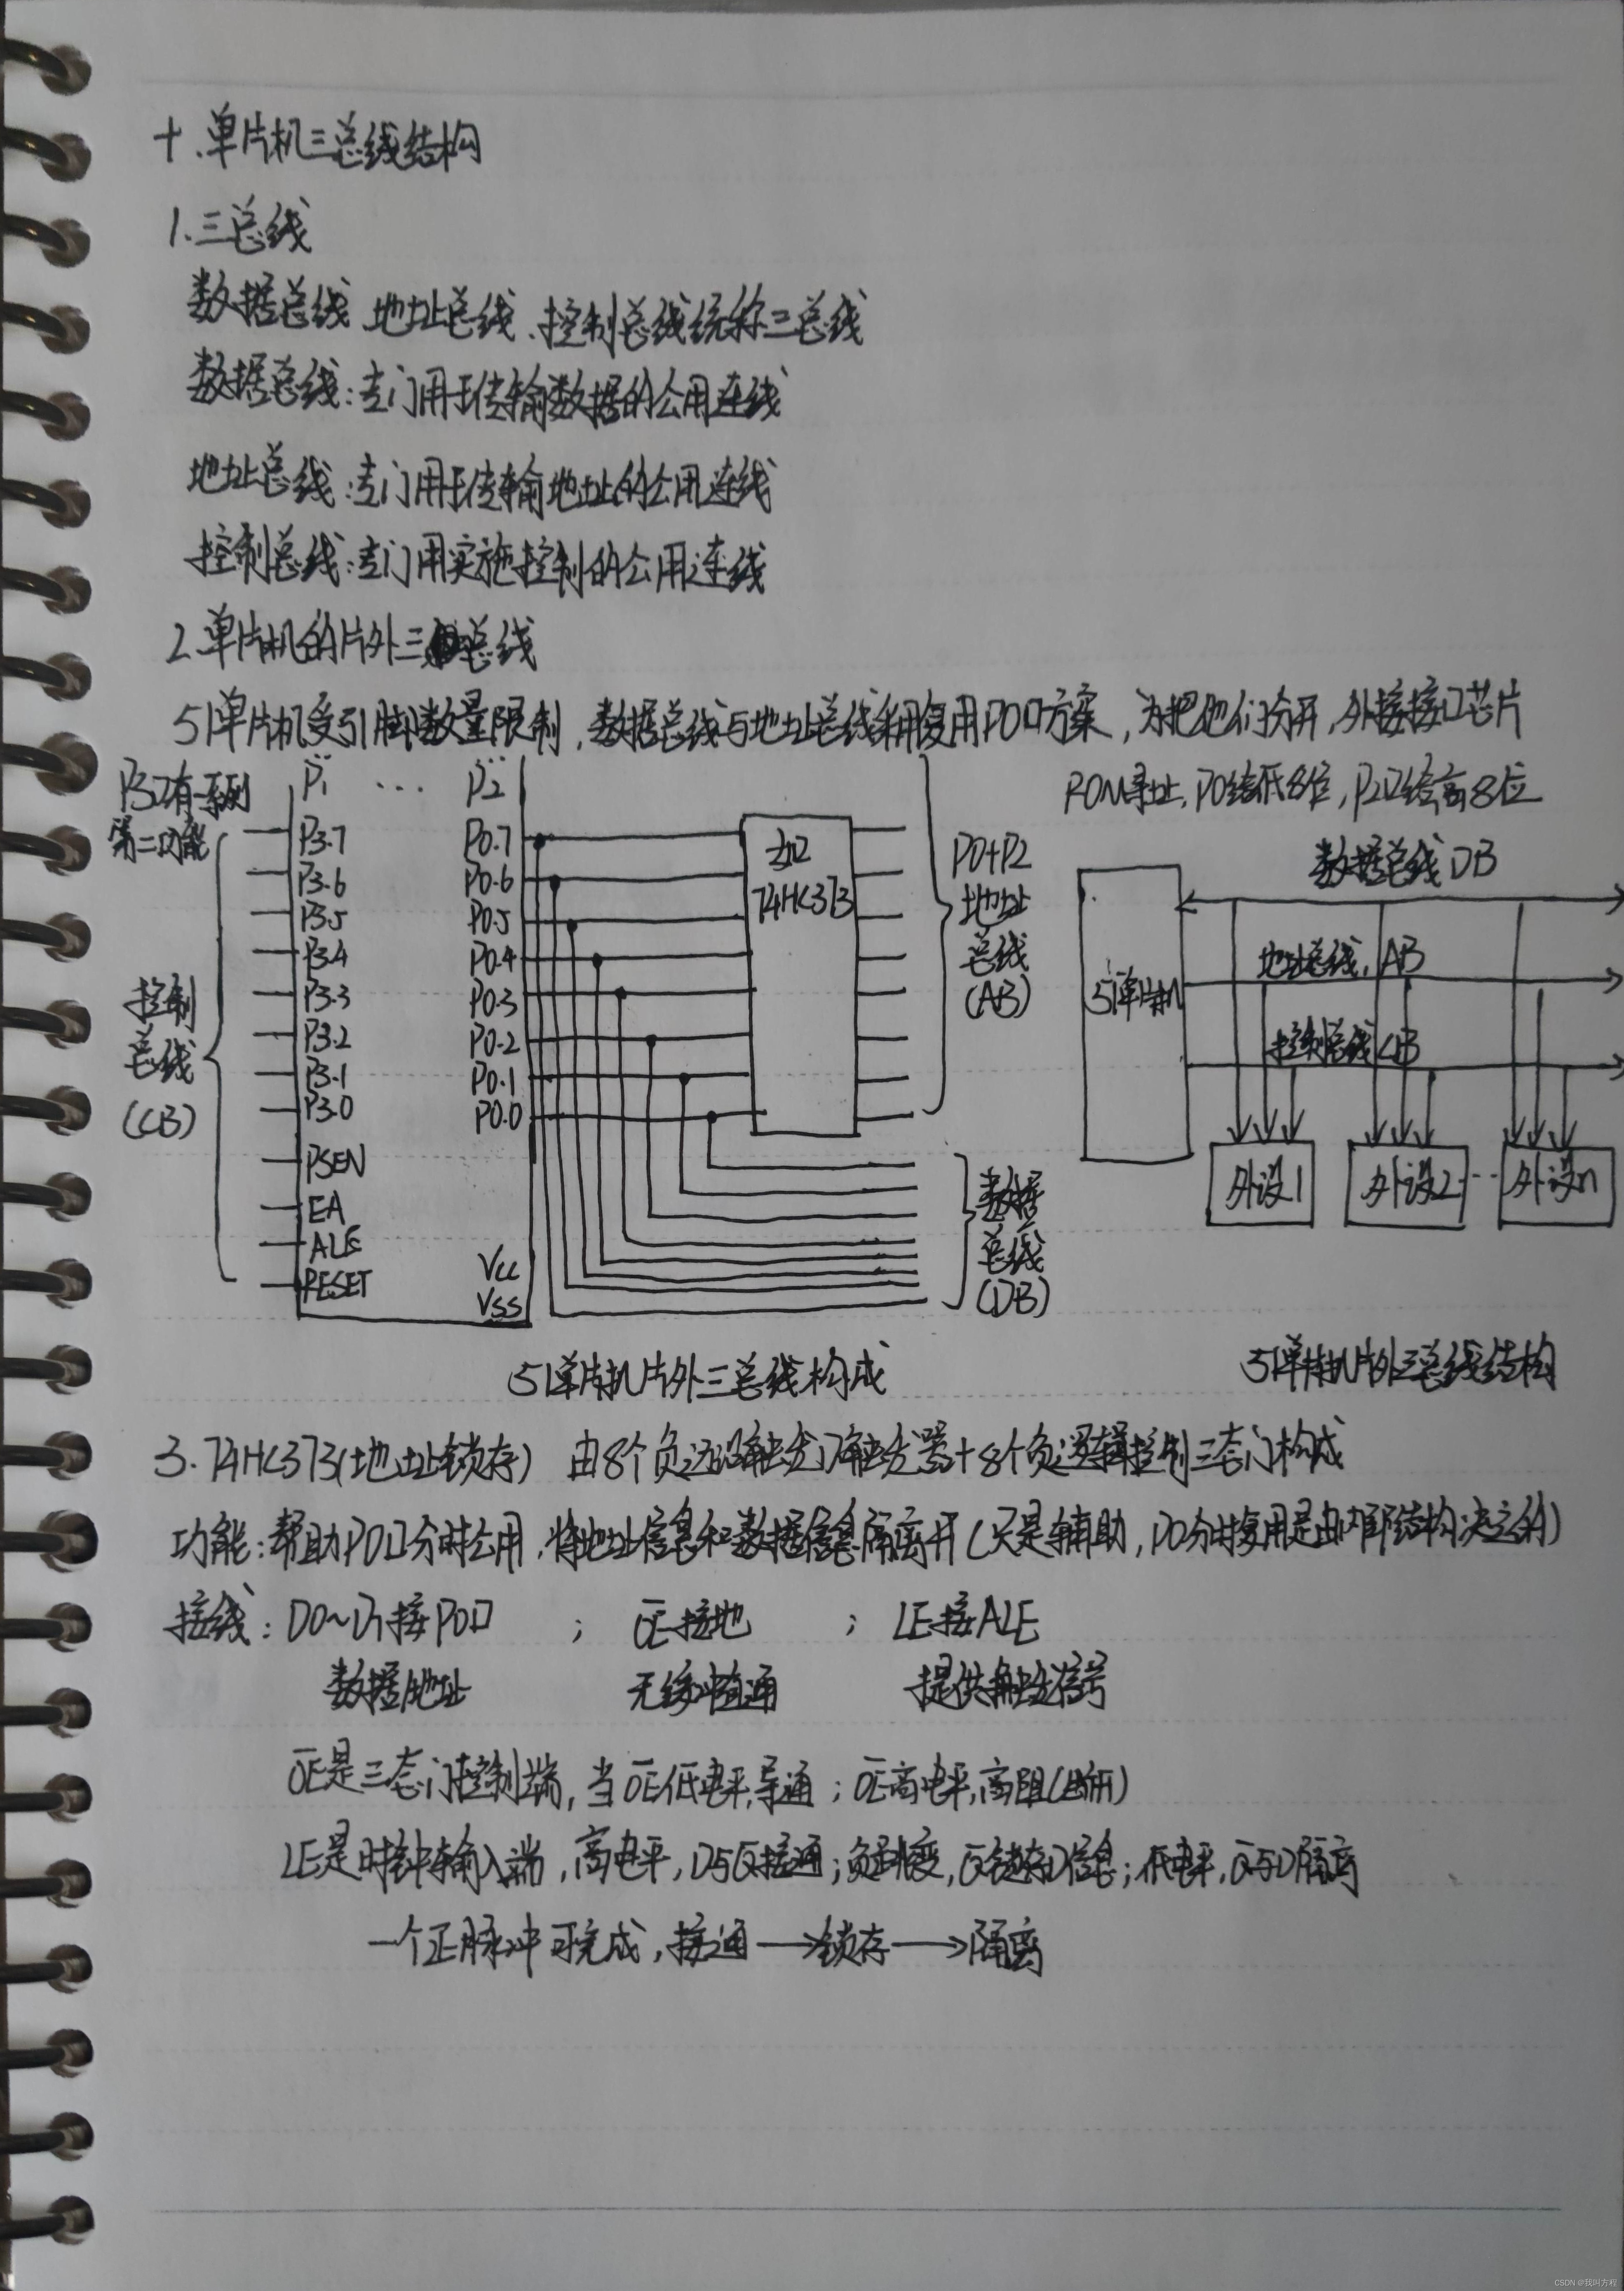 十.单片机三总线结构
1.三总线
数据总线、地址总线、控制总线统称三总线
数据总线:专门用于传输数据的公用连线
地址总线:专门用于传输地址的公用连线
控制总线:专门用实施控制的公用连线
2.单片机的片外三总线
51单片机受引脚数量限制,数据总线与地址总线采用复用P0口方案,为把他们分开,外接接口芯片
P3口有一系列
第二功能
P1 ... P2
ROM寻址,P0给低8位,P2口给高8位
P3.7
P3.6
P3.5
P3.4
P3.3
P3.2
P3.1
P3.0
PSEN
EA
ALE
RESET
控制
总线
(CB)
P0.7
P0.6
P0.5
P0.4
P0.3
P0.2
P0.1
P0.0
Vcc
Vss
如
74HC373
P0+P2
地址
总线
(AB)
数据
总线
(DB)
数据总线DB
地址总线AB
控制总线CB
51单片机
外设1
外设2
...
外设n
51单片机片外三总线构成
51单片机片外三总线结构
3.74HC373(地址锁存) 由8个负边沿触发D触发器+8个负逻辑控制三态门构成
功能:帮助P0口分时公用,将地址信息和数据信息隔离开(只是辅助,P0分时复用是由内部结构决定的)
接线:D0~D7接P0口 ; O̅E̅接地 ; LE接ALE
数据/地址 无缓冲直通 提供触发信号
O̅E̅是三态门控制端,当O̅E̅低电平,导通;O̅E̅高电平,高阻(断开)
LE是时钟输入端,高电平,D与Q̅接通;负跳变,Q̅锁存D信息;低电平,Q̅与D隔离
一个正脉冲可完成,接通→锁存→隔离
CSDN @我叫方程